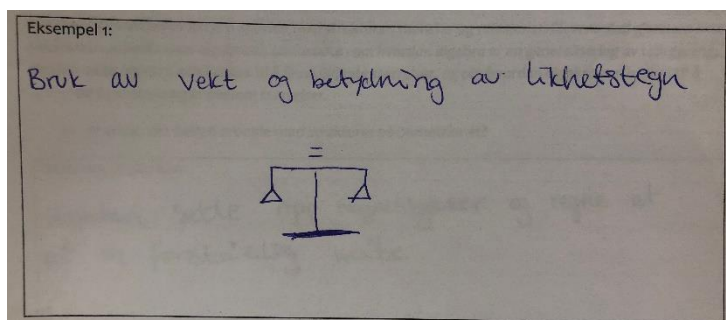 Eksempel 1:
Bruk av vekt og betydning av likhetstegn
=